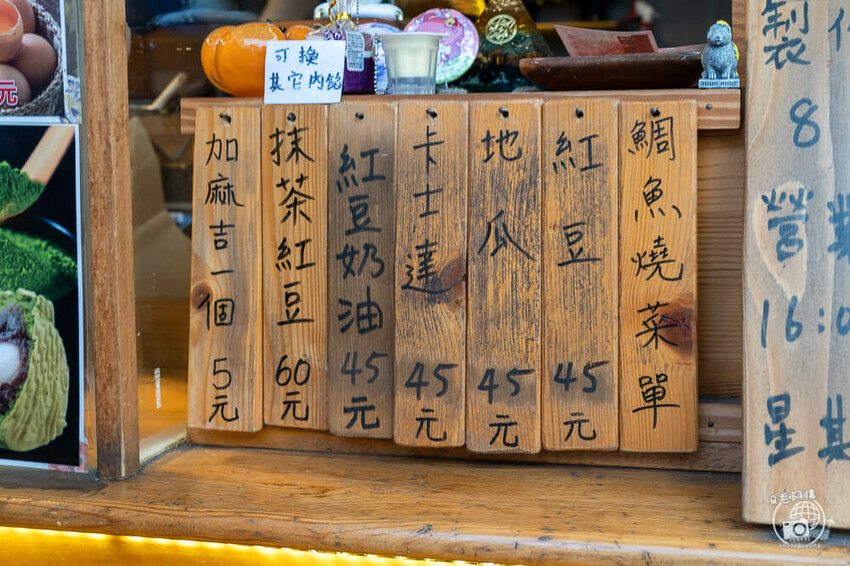 鯛魚燒菜單
紅豆 45元
地瓜 45元
卡士達 45元
紅豆奶油 45元
抹茶紅豆 60元
加麻吉一個 5元
可換
其它內餡
製
8
營業
16:0
星期
元